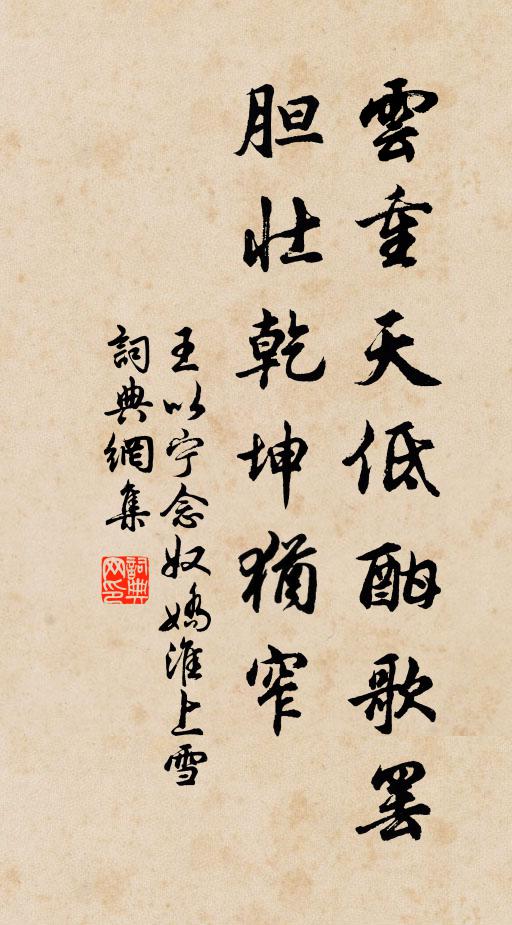 雲重天低酣歌罷
胆壮乾坤猶窄
王以宁念奴嬌淮上雪
詞典網集
詞典網印